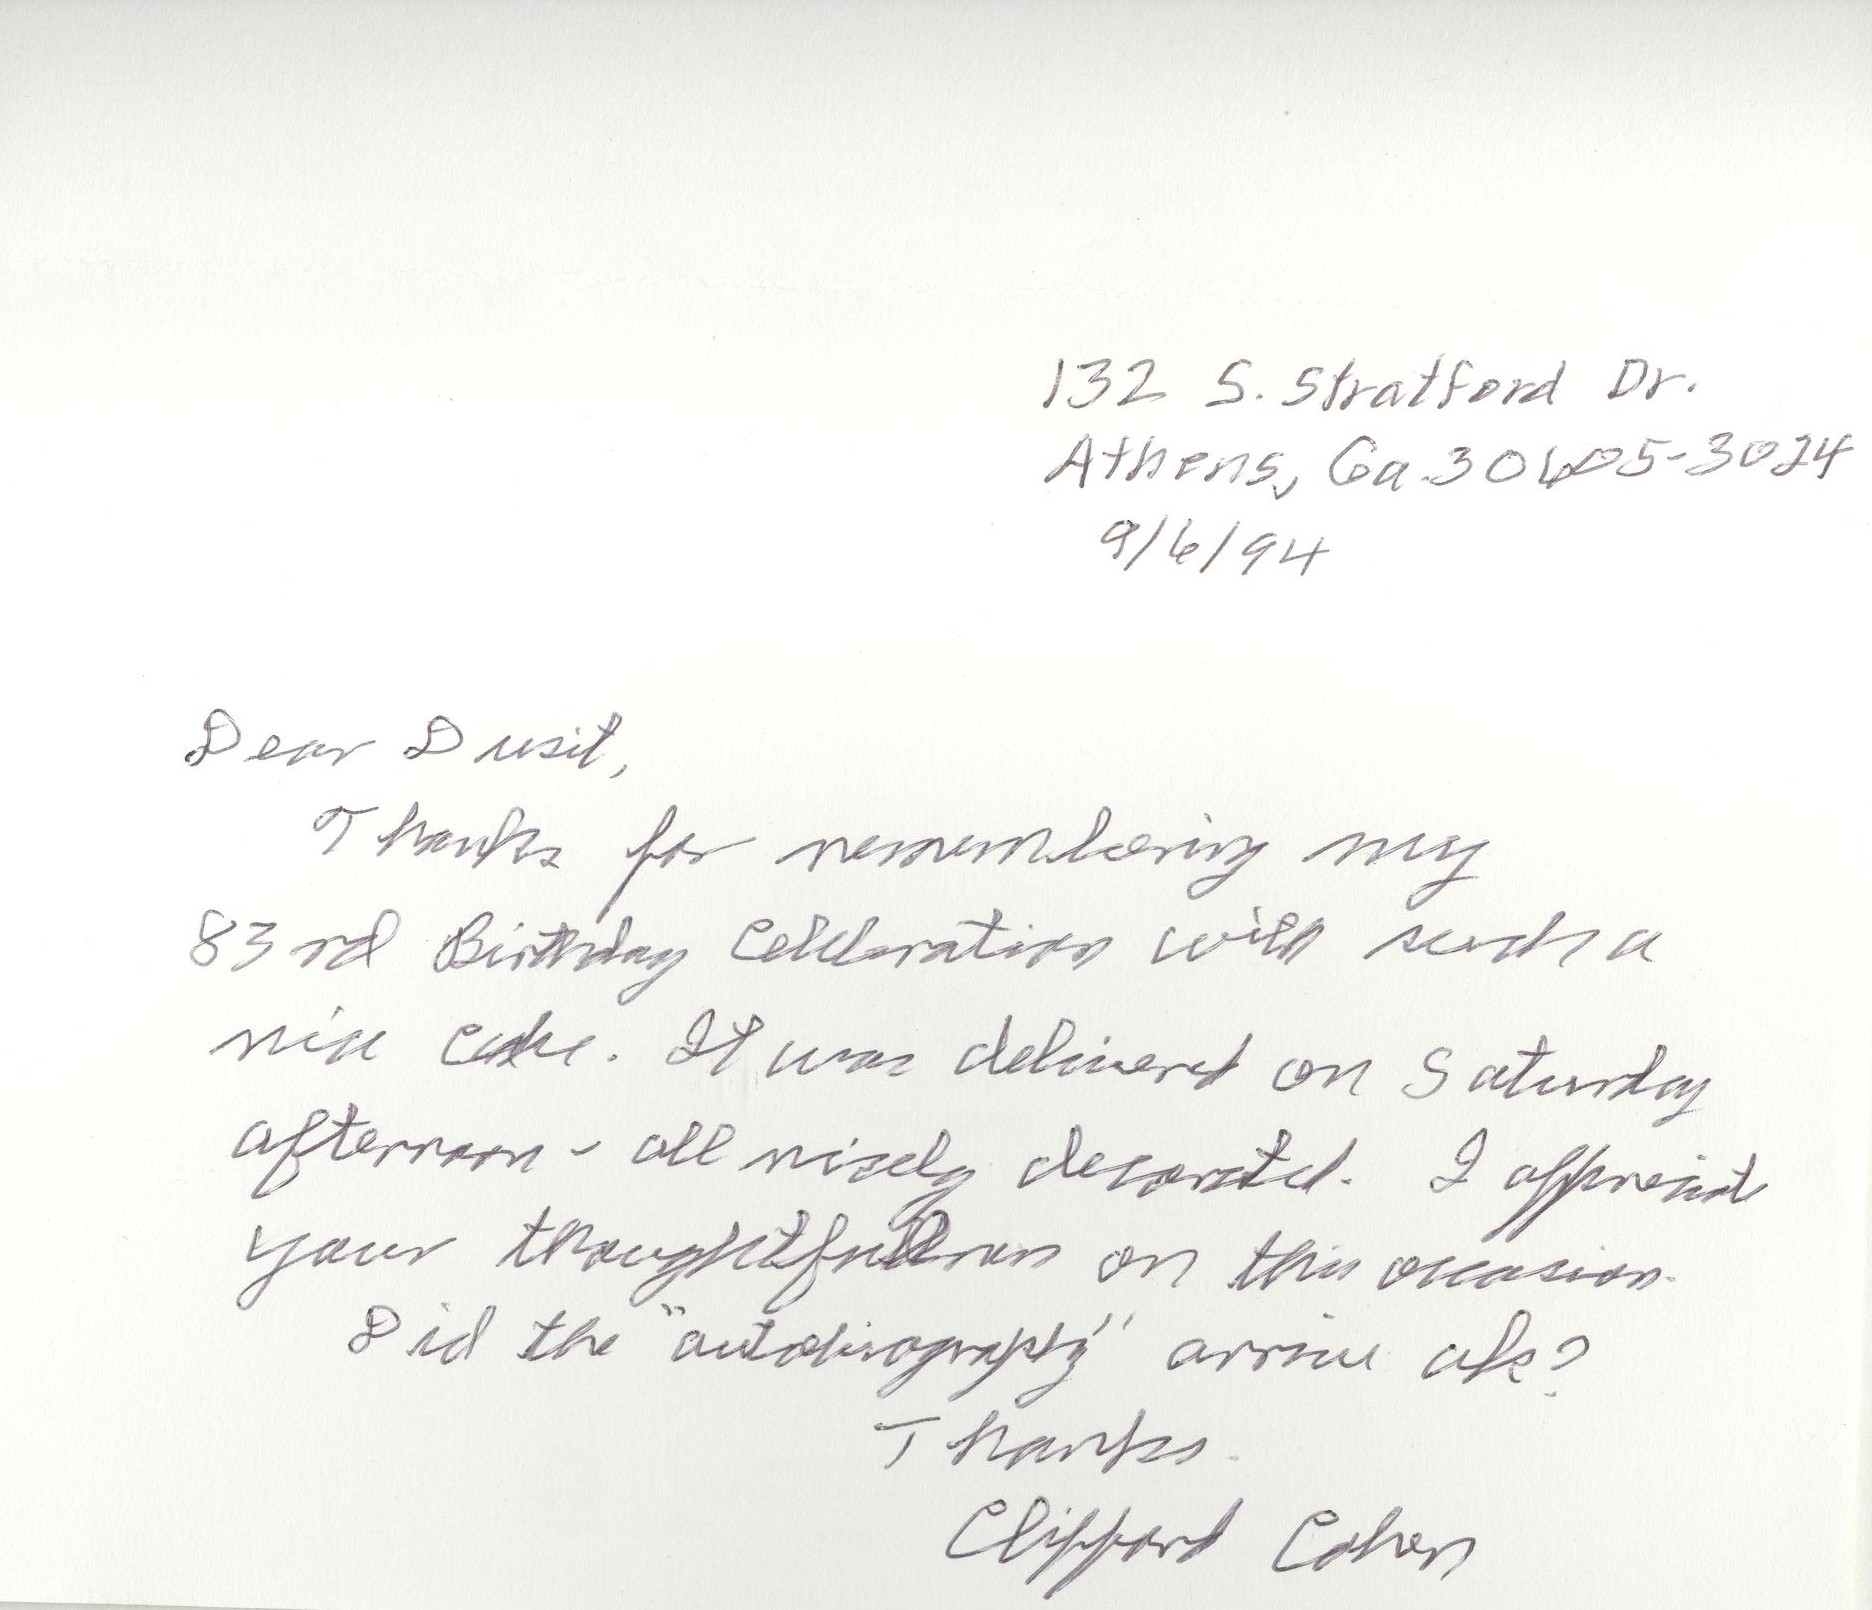 132 S. Stratford Dr.
Athens, Ga. 30605-3024
9/6/94
Dear Dusit,
Thanks for remembering my
83rd Birthday Celebration with such a
nice cake. It was delivered on Saturday
afternoon - all nicely decorated. I appreciate
your thoughtfullness on this occasion.
Did the "autobiography" arrive ok?
Thanks.
Clifford Cohen